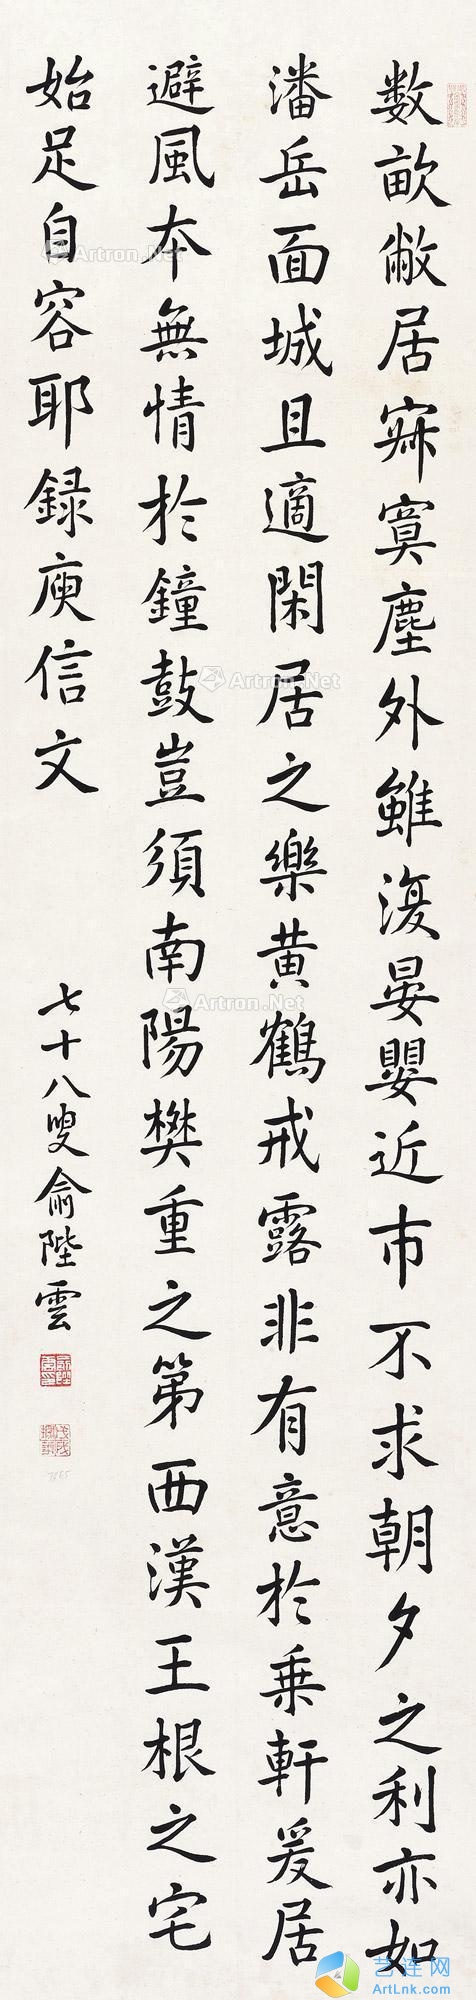 数畝敝居寂寞塵外雖復晏嬰近市不求朝夕之利亦如
潘岳面城且適閑居之樂黄鶴戒露非有意於乗軒爰居
避風夲無情於鐘鼓豈須南陽樊重之第西漢王根之宅
始足自容耶録庾信文
七十八叟俞陛雲
Artron.Net
Artron.Net
Artron.Net
Artron.Net
艺连网
ArtLnk.com